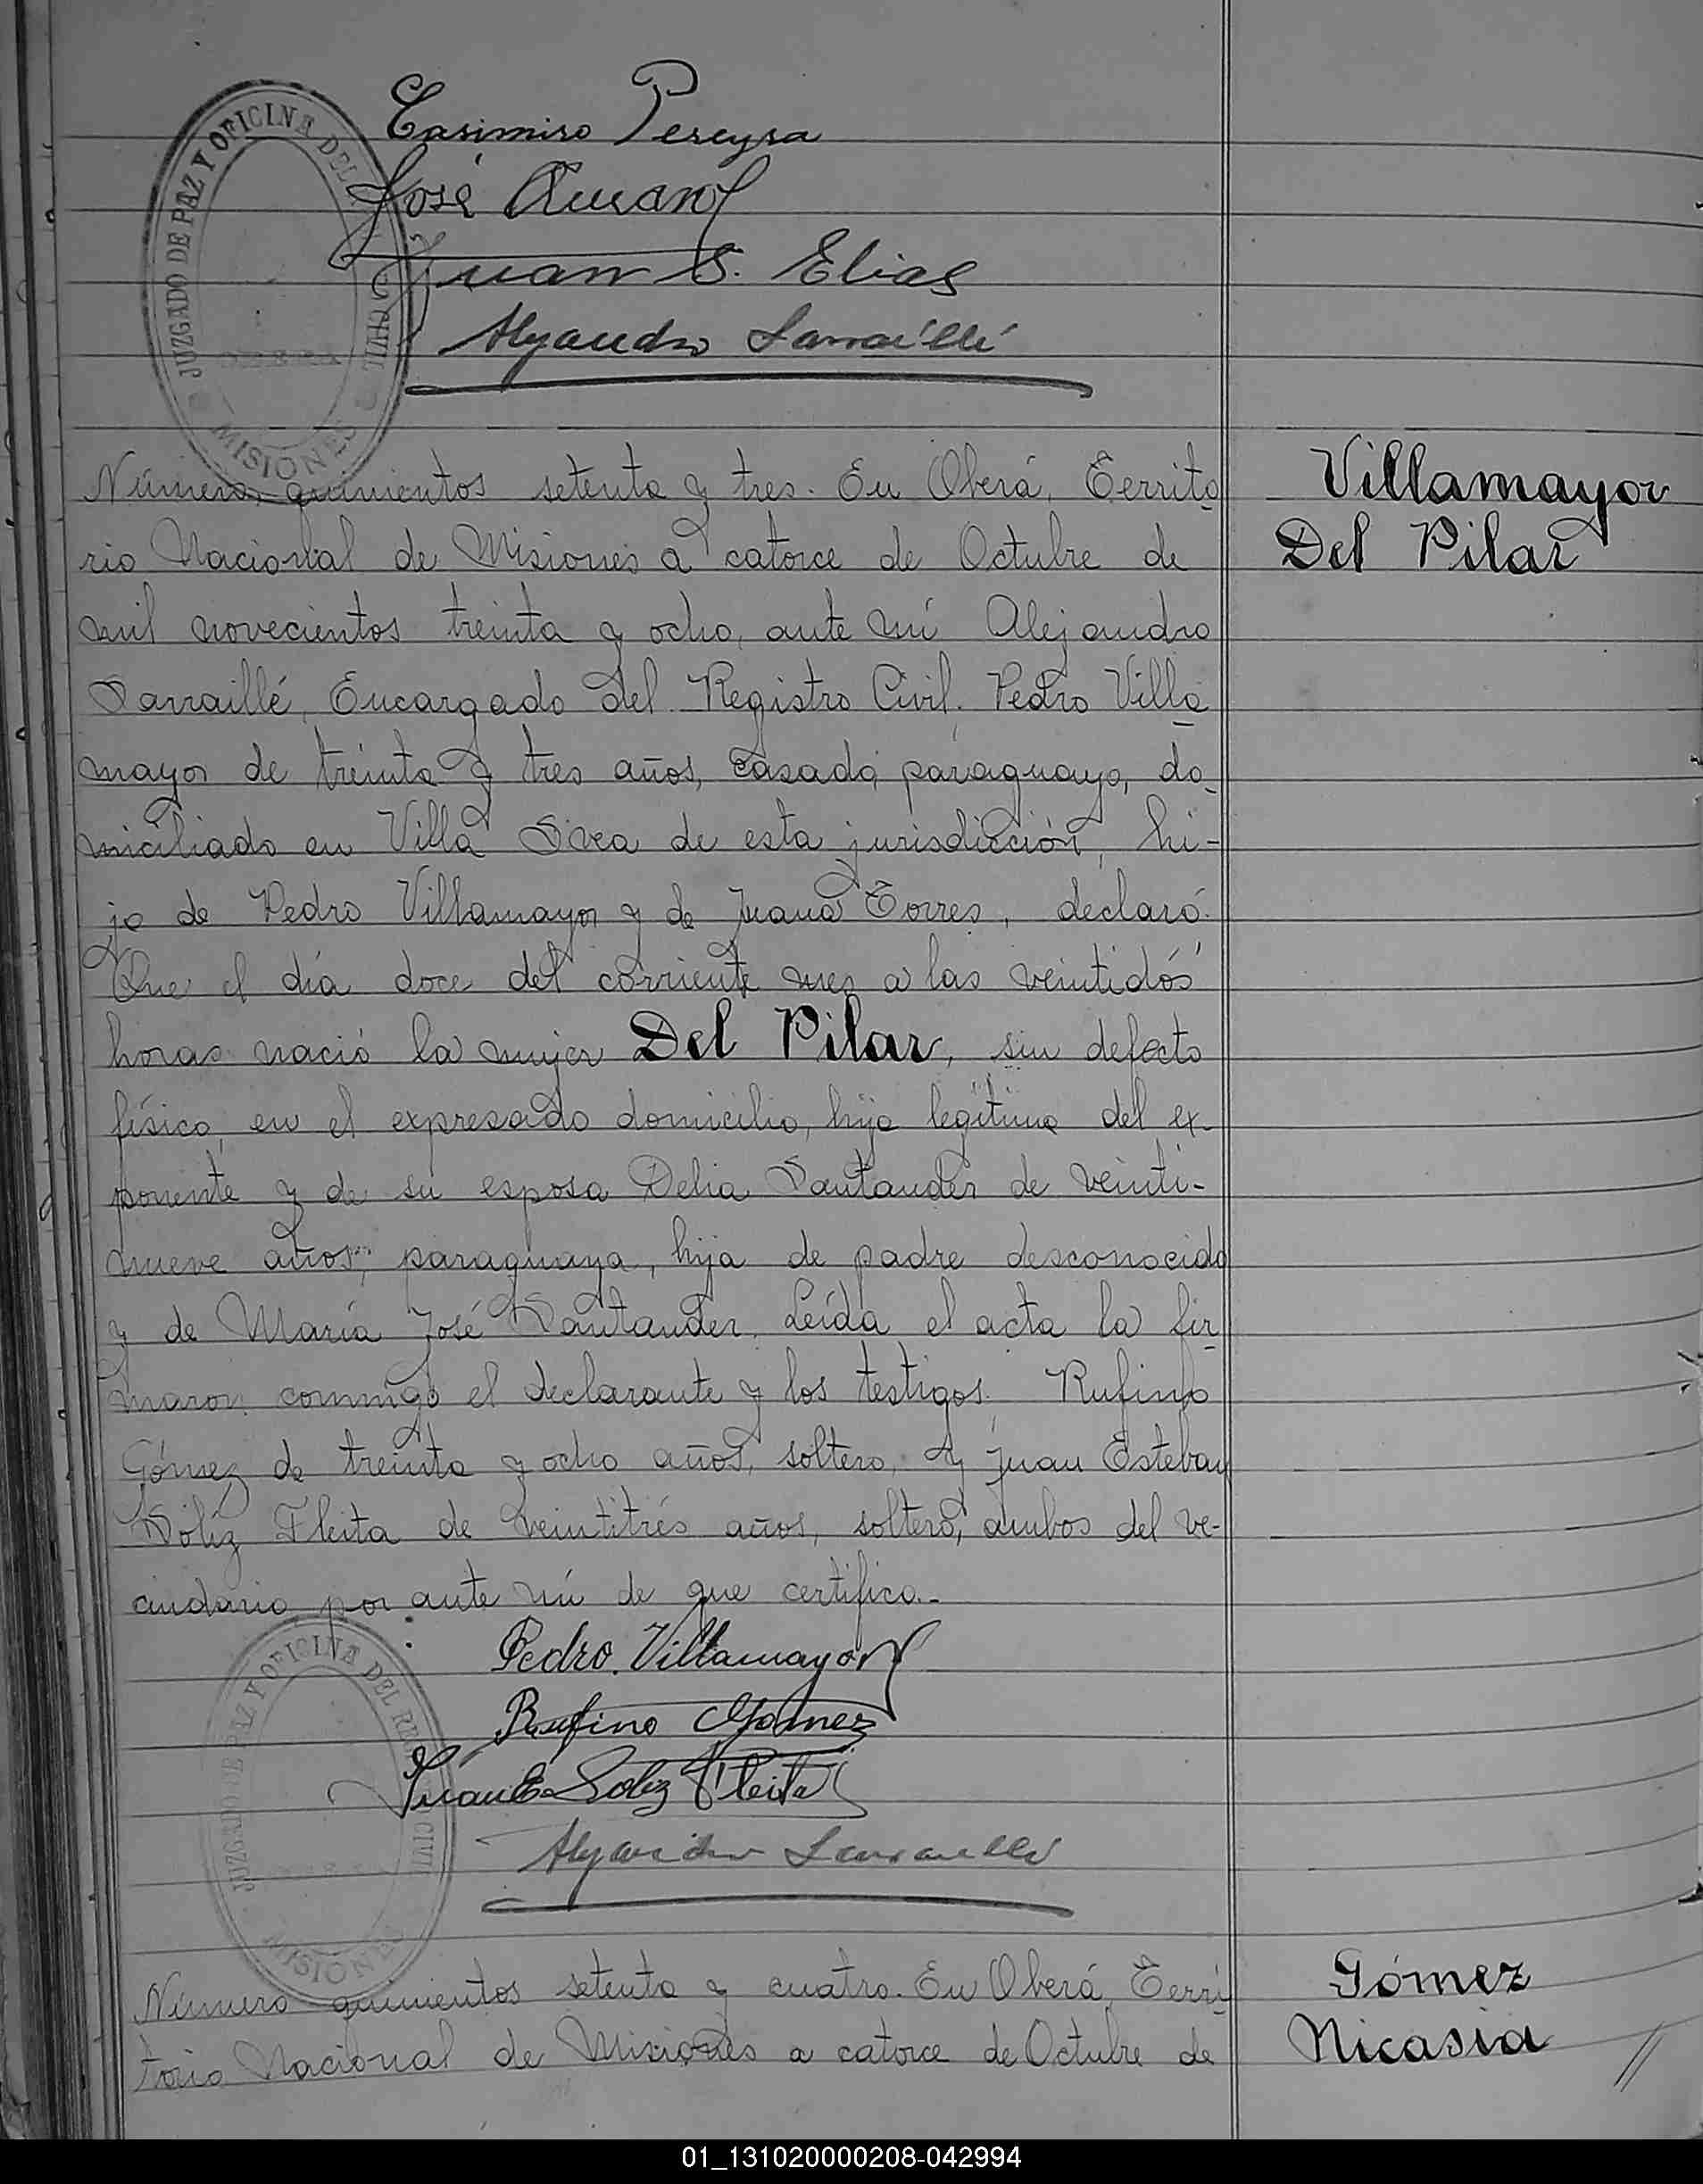 Casimiro Pereyra
José
Juan S. Elias
Alejandro Sarraillé
JUZGADO DE PAZ Y OFICINA DEL CIVIL
MISIONES
Número quinientos setenta y tres. En Oberá, Territo
rio Nacional de Misiones a catorce de Octubre de
mil novecientos treinta y ocho, ante mí Alejandro
Sarraillé, Encargado del Registro Civil. Pedro Villa
mayor de treinta y tres años, casado, paraguayo, do
miciliado en Villa Svea de esta jurisdicción, hi-
jo de Pedro Villamayor y de Juana Torres, declaró:
Que el día doce del corriente mes a las veintidós
horas nació la mujer Del Pilar, sin defecto
físico, en el expresado domicilio, hija legítima del ex-
ponente y de su esposa Delia Santander de veinti-
nueve años, paraguaya, hija de padre desconocido
y de María José Santander. Leída el acta la fir
maron conmigo el declarante y los testigos. Rufino
Gómez de treinta y ocho años, soltero, y Juan Esteban
Sóliz Fleita de veintitrés años, soltero, ambos del ve-
cindario por ante mí de que certifico.-
Pedro Villamayor
Rufino Gomez
Juan E. Soliz Fleita
Alejandro Sarraillé
JUZGADO DE PAZ Y OFICINA DEL REG CIVIL
MISIONES
Número quinientos setenta y cuatro. En Oberá, Terri
torio Nacional de Misiones a catorce de Octubre de
Villamayor
Del Pilar
Gómez
Nicasia
01_131020000208-042994